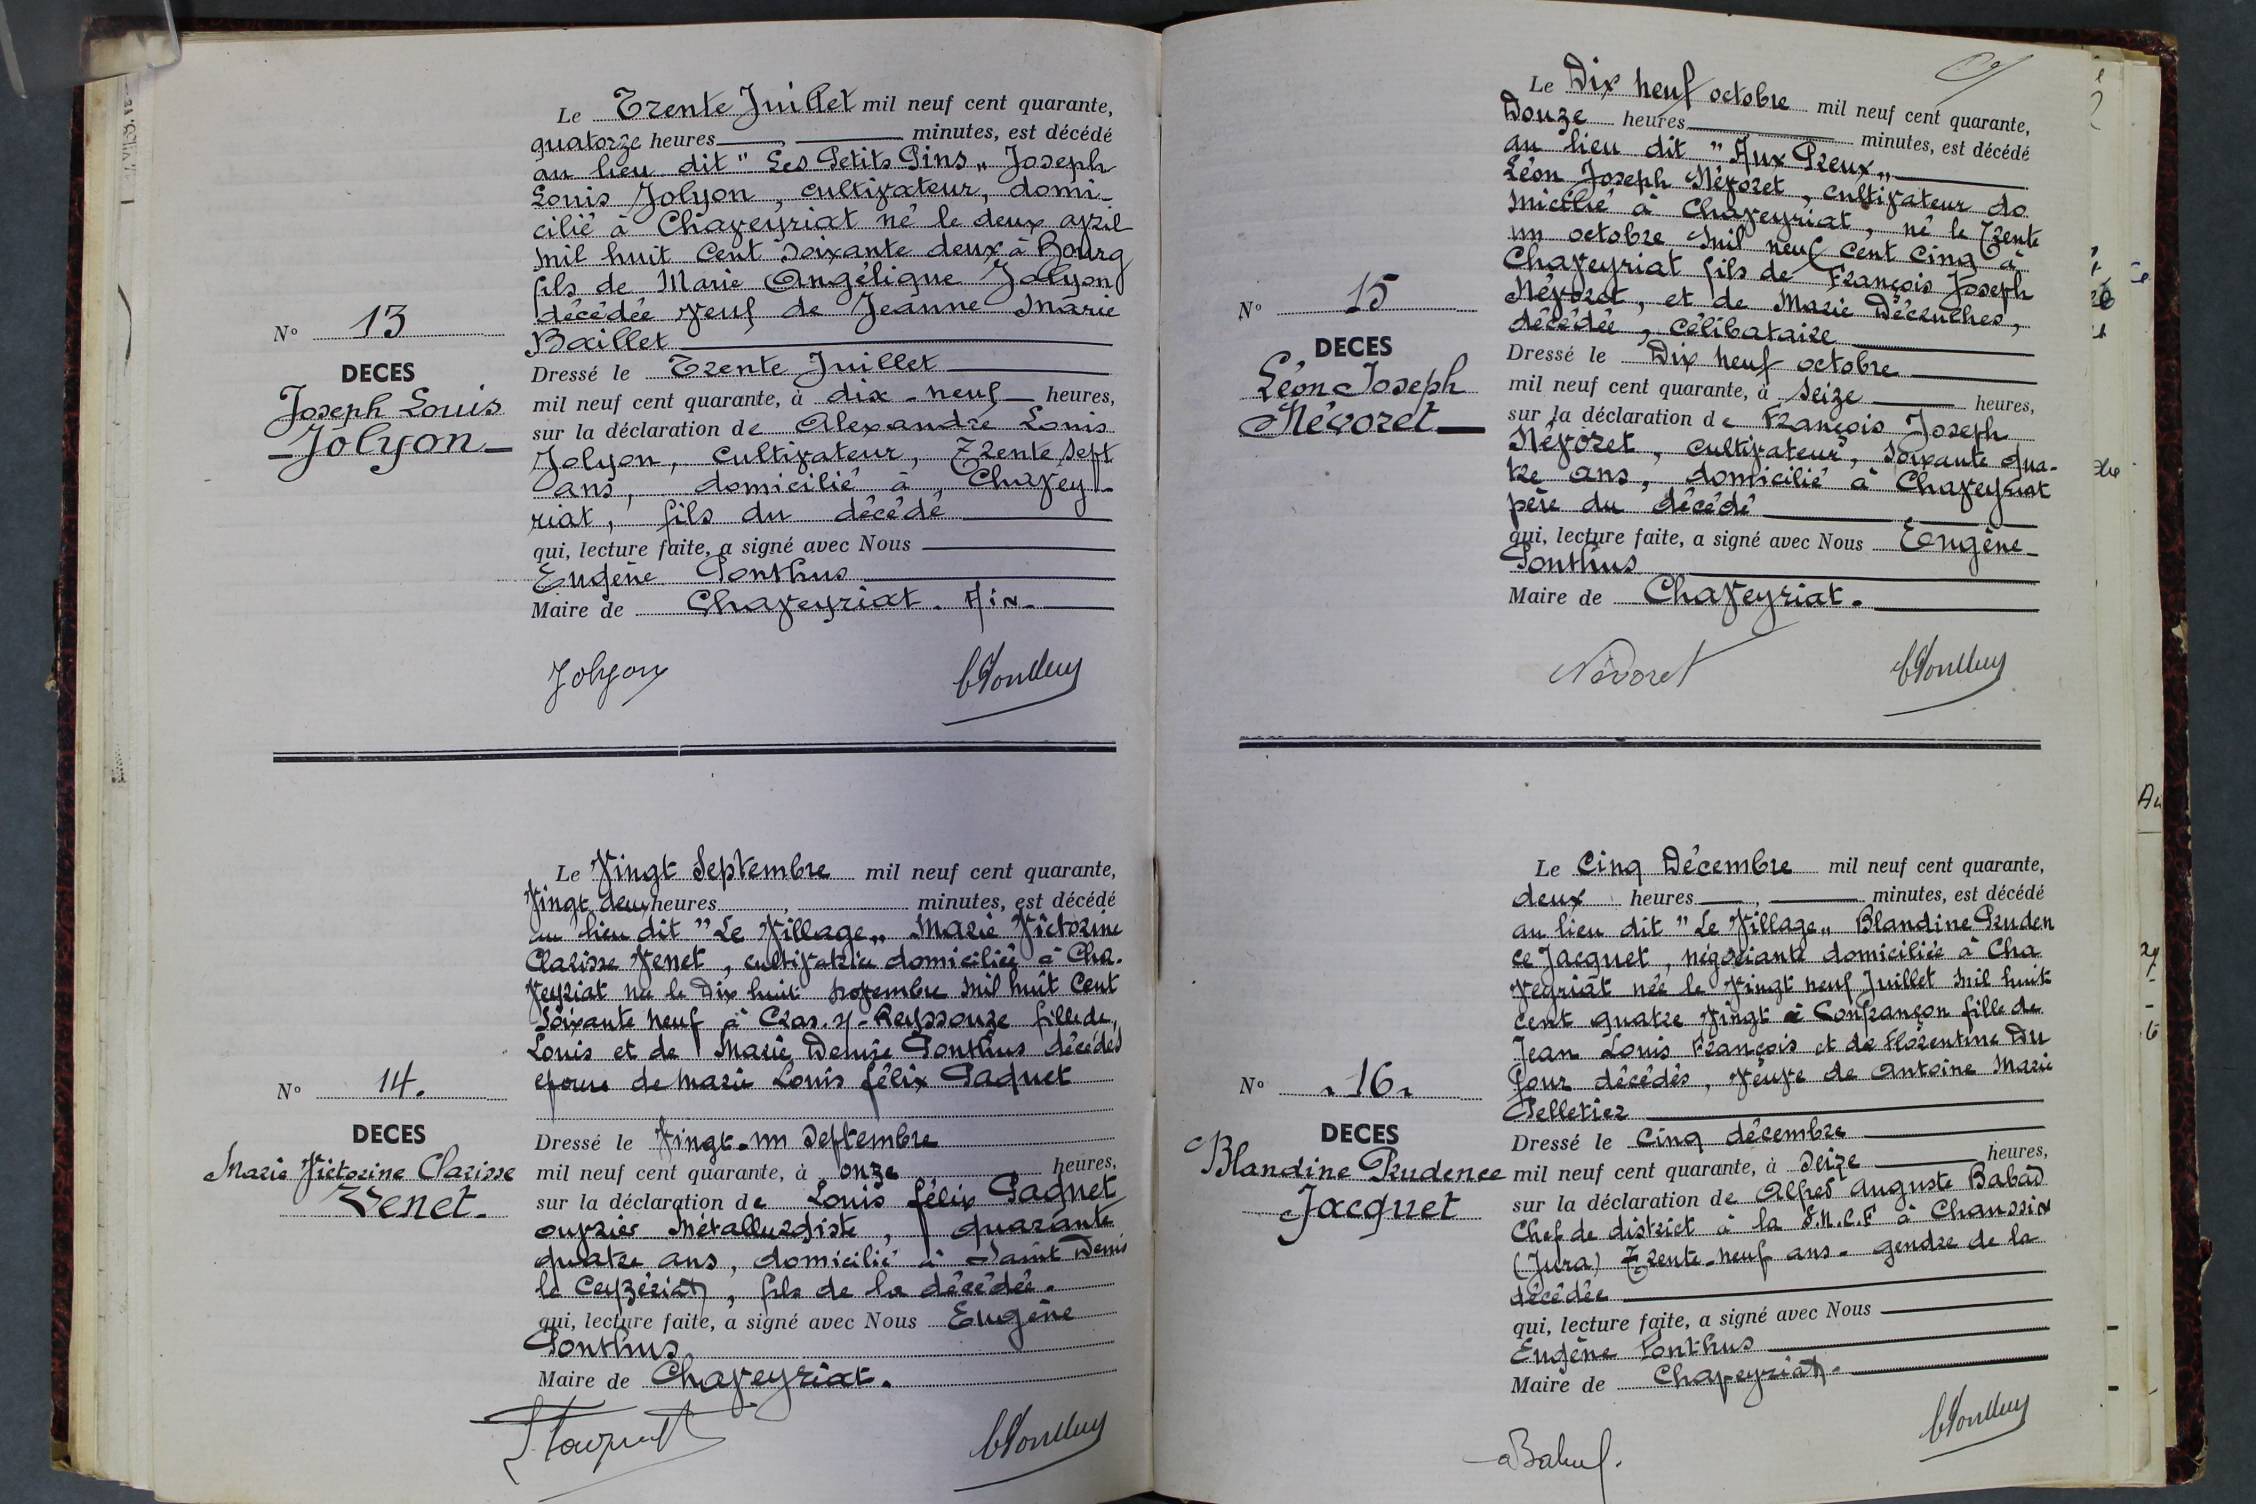 Le Trente Juillet mil neuf cent quarante,
quatorze heures minutes, est décédé
au lieu dit "Les Petits Pins" Joseph
Louis Jolyon, cultivateur, domi-
cilié à Chaveyriat né le deux avril
mil huit cent soixante deux à Bourg
fils de Marie Angélique Jolyon
décédée veuf de Jeanne Marie
Baillet
N° 13
DECES
Joseph Louis
Jolyon
Dressé le Trente Juillet
mil neuf cent quarante, à dix-neuf heures,
sur la déclaration de Alexandre Louis
Jolyon, cultivateur, Trente sept
ans, domicilié à Chavey-
riat, fils du décédé
qui, lecture faite, a signé avec Nous
Eugène Ponthus
Maire de Chaveyriat. Ain.
Jolyon
Le Vingt Septembre mil neuf cent quarante,
Vingt deux heures, minutes, est décédé
au lieu dit "Le Village" Marie Victorine
Clarisse Venet, cultivatrice domiciliée à Cha-
veyriat née le Dix huit novembre mil huit cent
soixante neuf à Cras-s/-Reyssouze fille de
Louis et de Marie Denise Ponthus décédés
épouse de Marie Louis félix Paquet
N° 14.
DECES
Marie Victorine Clarisse
Venet.
Dressé le Vingt-un septembre
mil neuf cent quarante, à onze heures,
sur la déclaration de Louis félix Paquet
ouvrier Métallurgiste, quarante
quatre ans, domicilié à Saint Denis
le Ceyzériat, fils de la décédée.
qui, lecture faite, a signé avec Nous Eugène
Ponthus
Maire de Chaveyriat.
Le Dix neuf octobre mil neuf cent quarante,
Douze heures minutes, est décédé
au lieu dit "Aux Preux"
Léon Joseph Névoret, cultivateur do
micilié à Chaveyriat, né le Trente
un octobre mil neuf cent cinq à
Chaveyriat fils de François Joseph
Névoret, et de Marie Décruches,
décédée, célibataire
N° 15
DECES
Léon Joseph
Névoret
Dressé le Dix neuf octobre
mil neuf cent quarante, à seize heures,
sur la déclaration de François Joseph
Névoret, cultivateur, soixante qua-
tre ans, domicilié à Chaveyriat
père du décédé
qui, lecture faite, a signé avec Nous Eugène
Ponthus
Maire de Chaveyriat.
Névoret
Le Cinq Décembre mil neuf cent quarante,
deux heures, minutes, est décédé
au lieu dit "Le Village" Blandine Pruden
ce Jacquet, négociante domiciliée à Cha
veyriat née le Vingt neuf Juillet mil huit
cent quatre vingt à Confrançon fille de
Jean Louis François et de Florentine Du
four décédés, Veuve de Antoine Marie
Pelletier
N° 16
DECES
Blandine Prudence
Jacquet
Dressé le Cinq décembre
mil neuf cent quarante, à seize heures,
sur la déclaration de Alfred Auguste Babad
Chef de district à la S.N.C.F à Chaussin
(Jura) Trente-neuf ans. gendre de la
décédée
qui, lecture faite, a signé avec Nous
Eugène Ponthus
Maire de Chaveyriat.